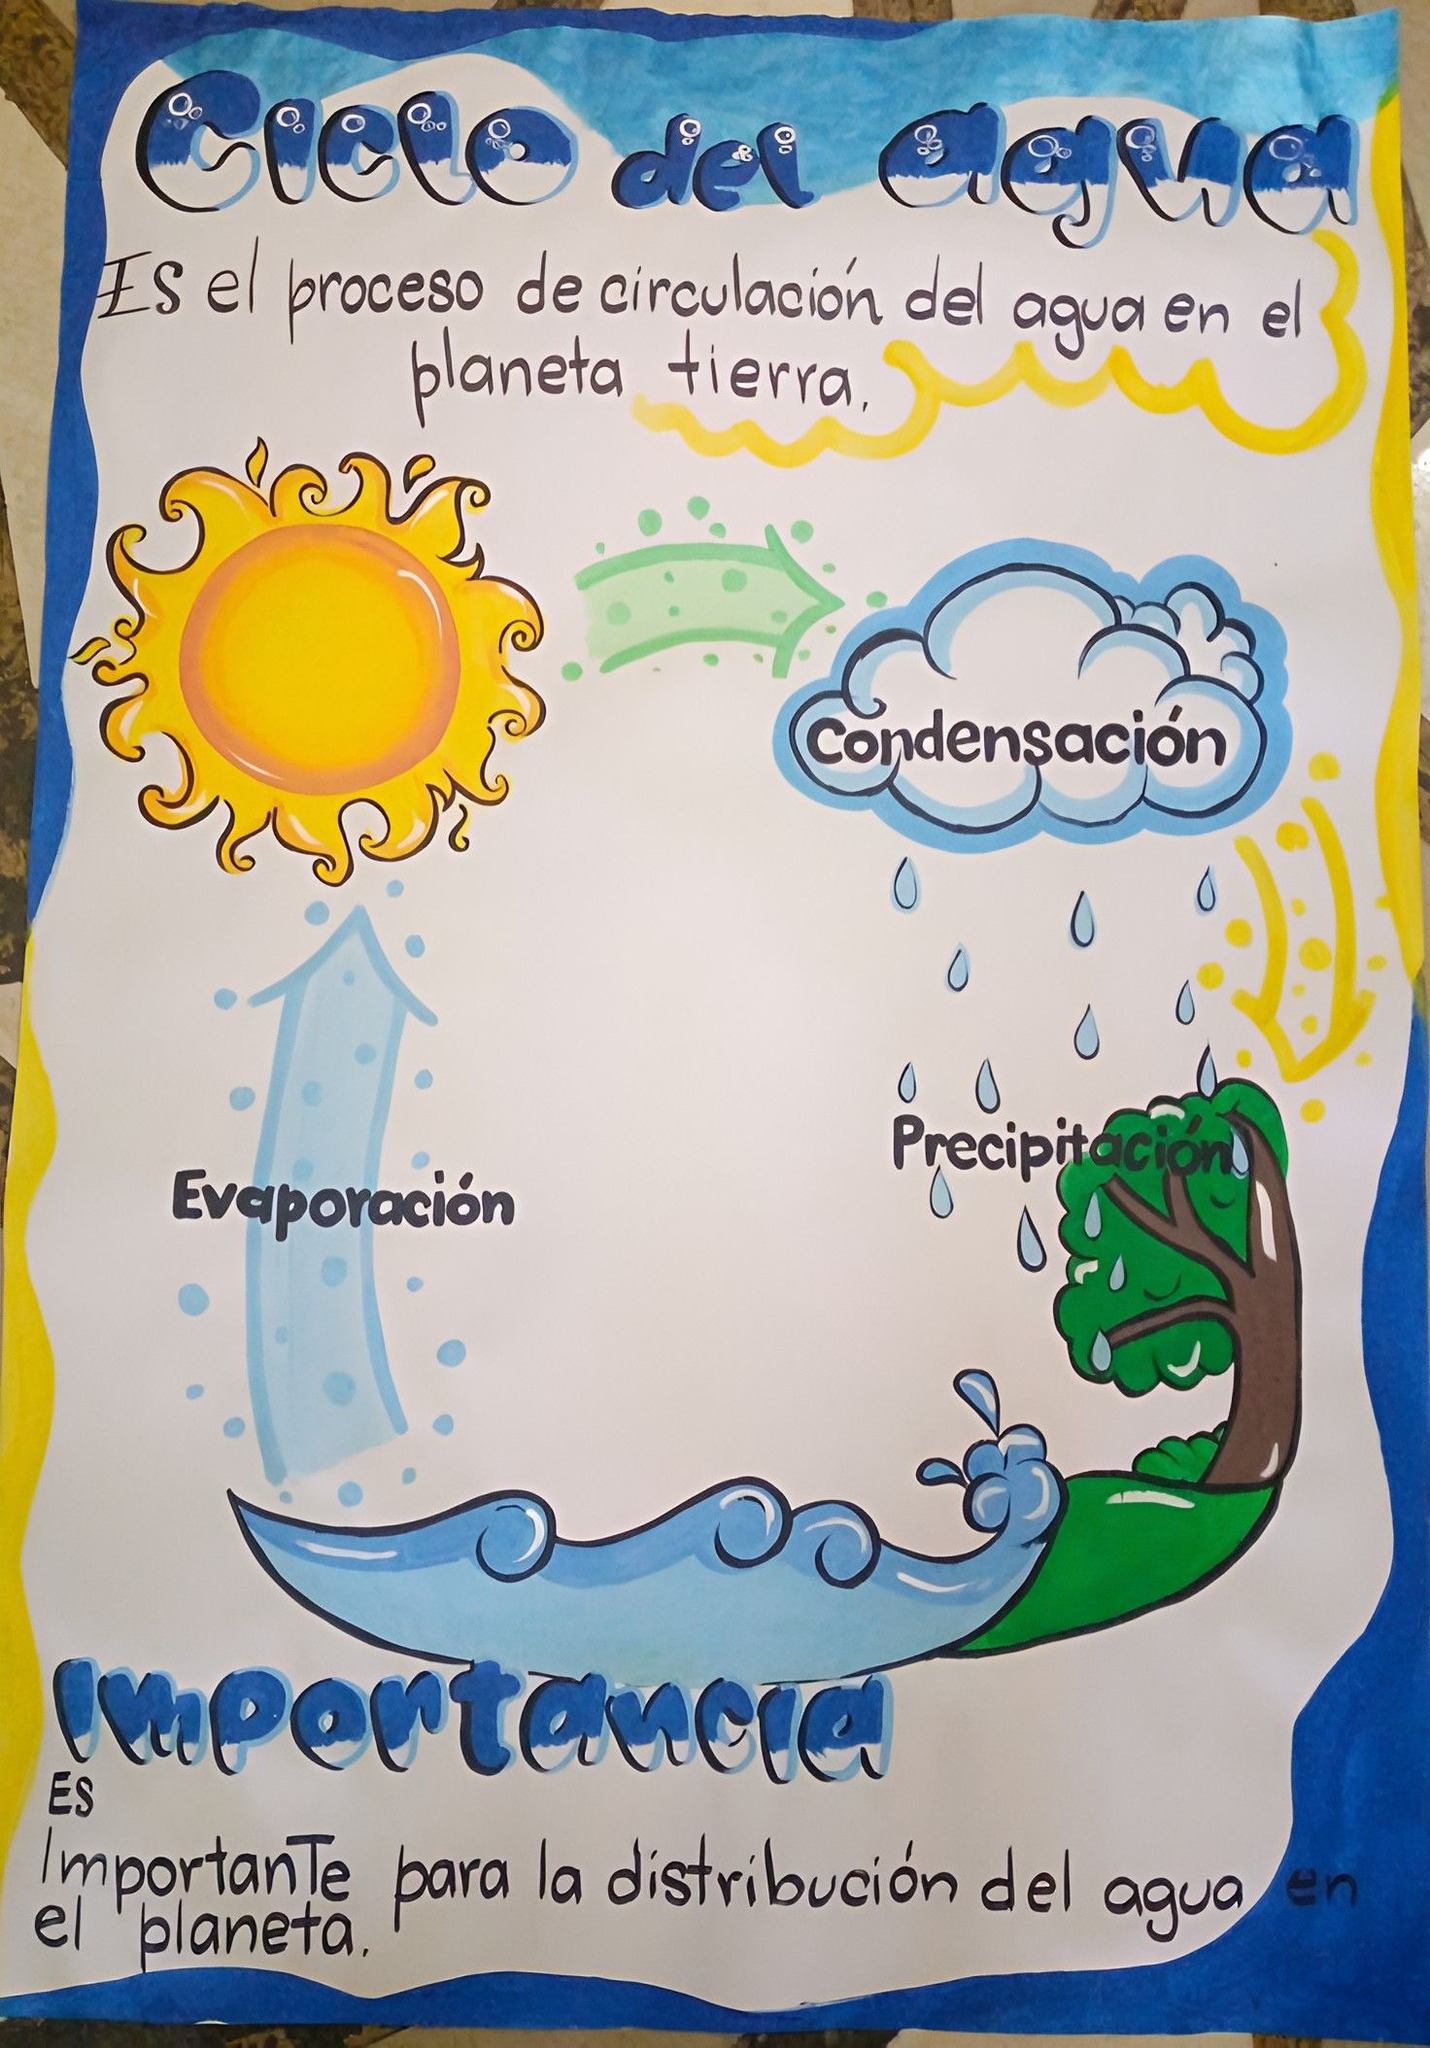 Ciclo del agua
Es el proceso de circulación del agua en el
planeta tierra.
Condensación
Precipitación
Evaporación
Importancia
Es
Importante para la distribución del agua en
el planeta.